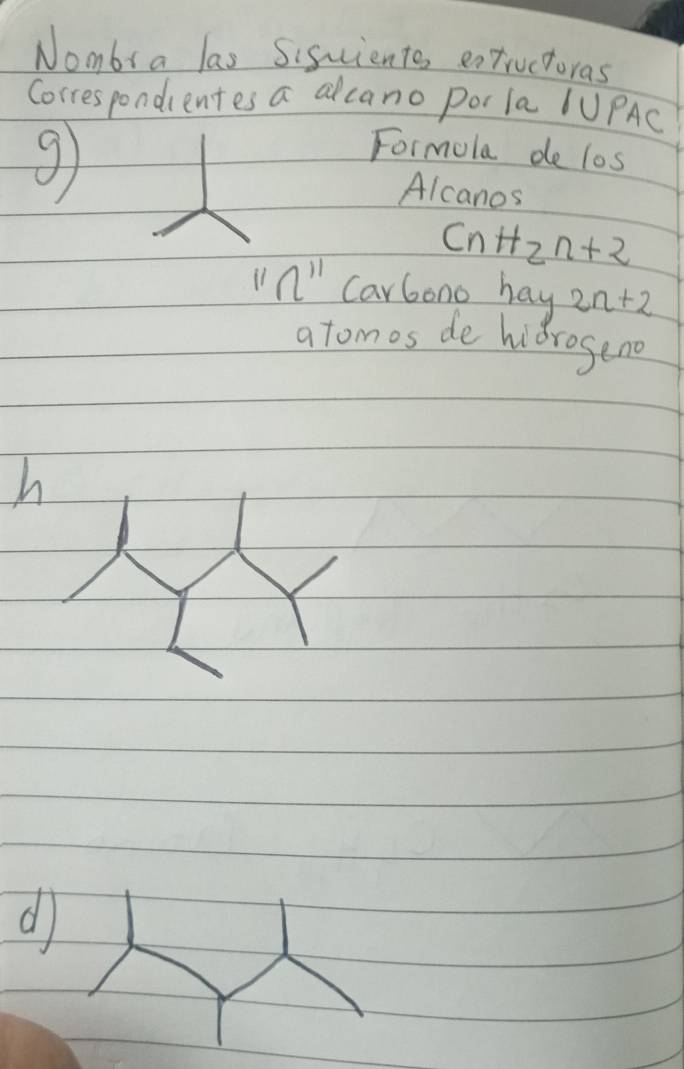 Nombra las Siguientes estructoras
Correspondientes a alcano por la IUPAC
g)
Formula de los
Alcanos
CnH2n+2
"n" Carbono hay 2n+2
atomos de hidrogeno
h
d)